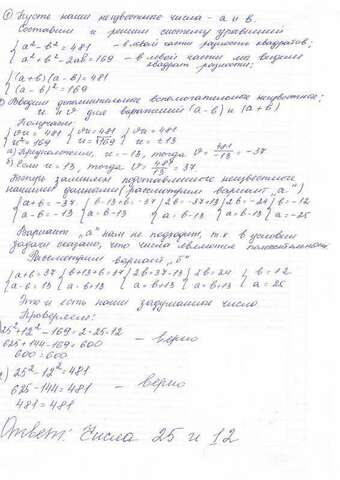 ① Пусть наши неизвестные числа - а и в.
Составим и решим систему уравнений
{ a² - в² = 481 - в левой части разность квадратов;
{ a² + в² - 2ab = 169 - в левой части мы видим
квадрат разности;
{ (a+в)(a-в) = 481
{ (a-в)² = 169
Вводим дополнительное вспомогательное неизвестное;
u и ϑ для выражений (a-в) и (a+в)
Получаем:
{ ϑu = 481 { ϑu = 481 { ϑu = 481
{ u² = 169 { u = √169 { u = ±13
а) Предположим, u = -13, тогда ϑ = 481/-13 = -37
б) Если u = 13, тогда ϑ = 481/13 = 37
Теперь заменим вспомогательные неизвестные
нашими данными (рассмотрим вариант „а“)
{ a+в = -37 { в-13+в = -37 { 2в = -37+13 { 2в = -24 { в = -12
{ a-в = -13 { a = в-13 { a = в-13 { a = в-13 { a = -25
Вариант „а“ нам не подходит, т.к в условии
задачи сказано, что числа являются положительными
Рассмотрим вариант „б“
{ a+в = 37 { в+13+в = 37 { 2в = 37-13 { 2в = 24 { в = 12
{ a-в = 13 { a = в+13 { a = в+13 { a = в+13 { a = 25
Это и есть наши задуманные числа
Проверяем:
25² + 12² - 169 = 2·25·12
625 + 144 - 169 = 600 - верно
600 = 600
2) 25² - 12² = 481
625 - 144 = 481 - верно
481 = 481
Ответ: Числа 25 и 12